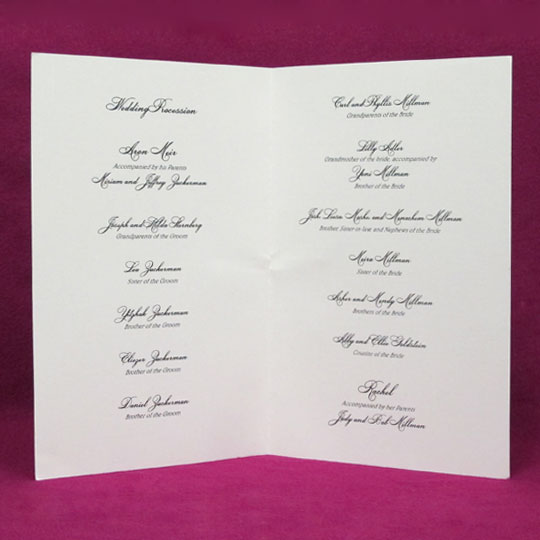 Wedding Procession
Aron Meir
Accompanied by his Parents
Miriam and Jeffrey Zuckerman
Joseph and Hilda Sternberg
Grandparents of the Groom
Lea Zuckerman
Sister of the Groom
Yitzhak Zuckerman
Brother of the Groom
Eliezer Zuckerman
Brother of the Groom
Daniel Zuckerman
Brother of the Groom
Carl and Phyllis Millman
Grandparents of the Bride
Lilly Adler
Grandmother of the bride, accompanied by
Millman
Brother of the Bride
Josh Lucia Marks and Menachem Millman
Brother, Sister-in-law and Nephews of the Bride
Meira Millman
Sister of the Bride
Asher and Mendy Millman
Brothers of the Bride
Abby and Ellie Goldstein
Cousins of the Bride
Rachel
Accompanied by her Parents
Judy and Bob Millman